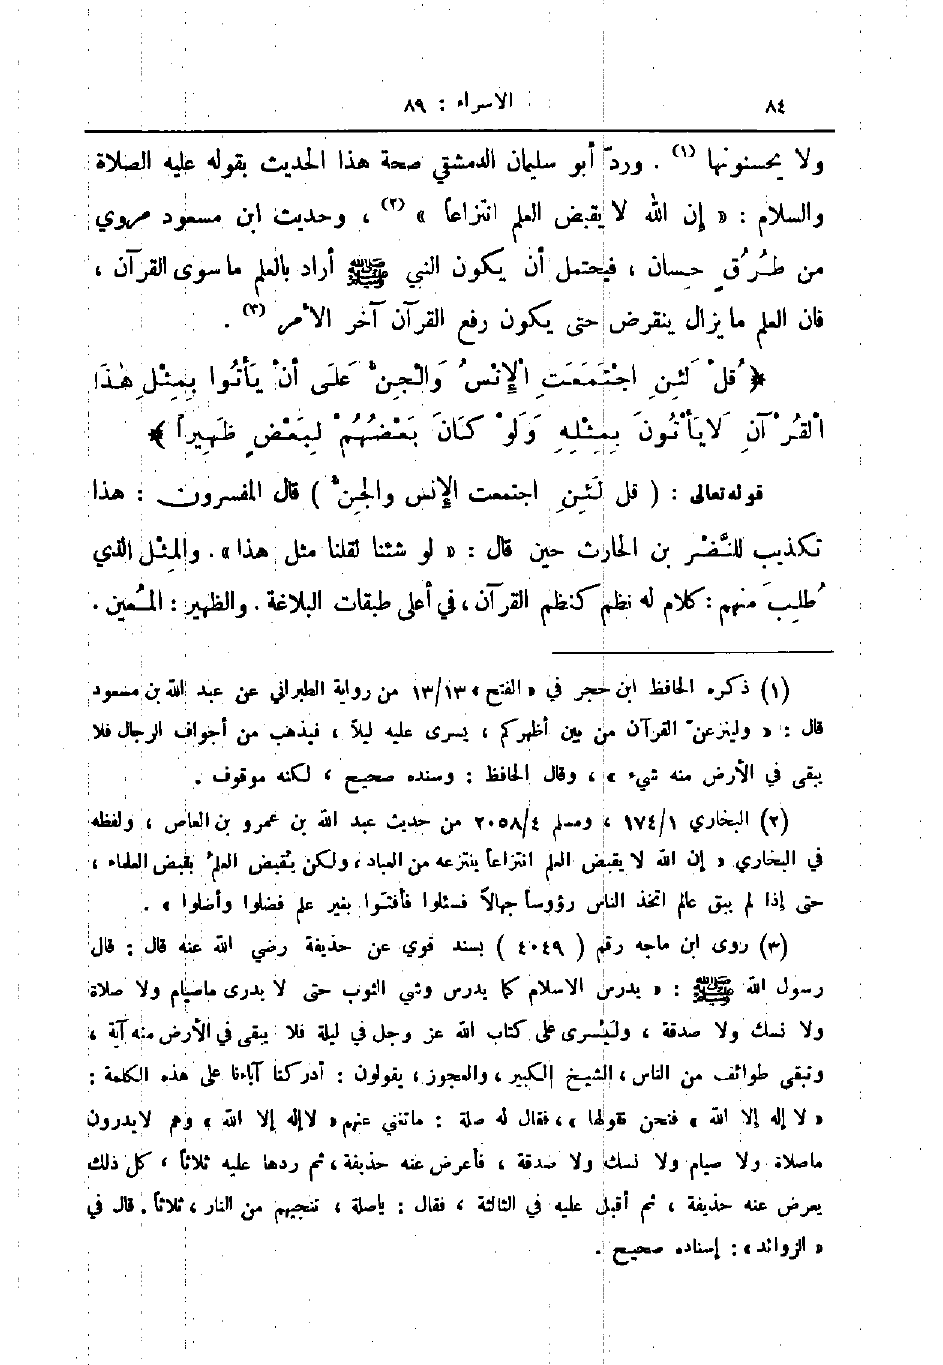 ٨٤
الاسراء : ٨٩
ولا يحسنونها (١) . وردّ أبو سليمان الدمشقي صحة هذا الحديث بقوله عليه الصلاة
والسلام : « إن الله لا يقبض العلم انتزاعاً » (٢) ، وحديث ابن مسعود مروي
من طُرُقٍ حِسان ، فيحتمل أن يكون النبي ﷺ أراد بالعلم ماسوى القرآن ،
فان العلم مايزال ينقرض حتى يكون رفع القرآن آخر الأمر (٣) .
﴿ قُلْ لَئِنِ اجْتَمَعَتِ الْإِنْسُ وَالْجِنُّ عَلَى أَنْ يَأْتُوا بِمِثْلِ هٰذَا
الْقُرْآنِ لَايَأْتُونَ بِمِثْلِهِ وَلَوْ كَانَ بَعْضُهُمْ لِبَعْضٍ ظَهِيراً ﴾
قوله تعالى : ( قل لَئِنِ اجتمعت الإنس والجنُّ ) قال المفسرون : هذا
تكذيب للنَّضْر بن الحارث حين قال : « لو شئنا لقلنا مثل هذا » . والمِثْل الذي
طُلِبَ منهم : كلام له نظم كنظم القرآن ، في أعلى طبقات البلاغة . والظهير : المُعين .
(١) ذكره الحافظ ابن حجر في « الفتح » ١٣/١٣ من رواية الطبراني عن عبد الله بن مسعود
قال : « ولينزعنّ القرآن من بين أظهركم ، يسرى عليه ليلاً ، فيذهب من أجواف الرجال فلا
يبقى في الأرض منه شيء » ، وقال الحافظ : وسنده صحيح ، لكنه موقوف .
(٢) البخاري ١٧٤/١ ، ومسلم ٢٠٥٨/٤ من حديث عبد الله بن عمرو بن العاص ، ولفظه
في البخاري « إن الله لا يقبض العلم انتزاعاً ينتزعه من العباد ، ولكن يُقبض العلمُ بقبض العلماء ،
حتى إذا لم يبق عالم اتخذ الناس رؤوساً جهالاً فسئلوا فأفتوا بغير علم فضلوا وأضلوا » .
(٣) روى ابن ماجه رقم ( ٤٠٤٩ ) بسند قوي عن حذيفة رضي الله عنه قال : قال
رسول الله ﷺ : « يدرس الاسلام كما يدرس وشي الثوب حتى لا يدرى ماصيام ولا صلاة
ولا نسك ولا صدقة ، وليُسرى على كتاب الله عز وجل في ليلة فلا يبقى في الأرض منه آية ،
وتبقى طوائف من الناس ، الشيخ الكبير ، والعجوز ، يقولون : أدركنا آباءنا على هذه الكلمة :
« لا إله إلا الله » فنحن نقولها » ، فقال له صلة : ماتغني عنهم « لاإله إلا الله » وهم لايدرون
ماصلاة ولا صيام ولا نسك ولا صدقة ، فأعرض عنه حذيفة ، ثم ردها عليه ثلاثاً ، كل ذلك
يعرض عنه حذيفة ، ثم أقبل عليه في الثالثة ، فقال : ياصلة ، تنجيهم من النار ، ثلاثاً . قال في
« الزوائد » : إسناده صحيح .